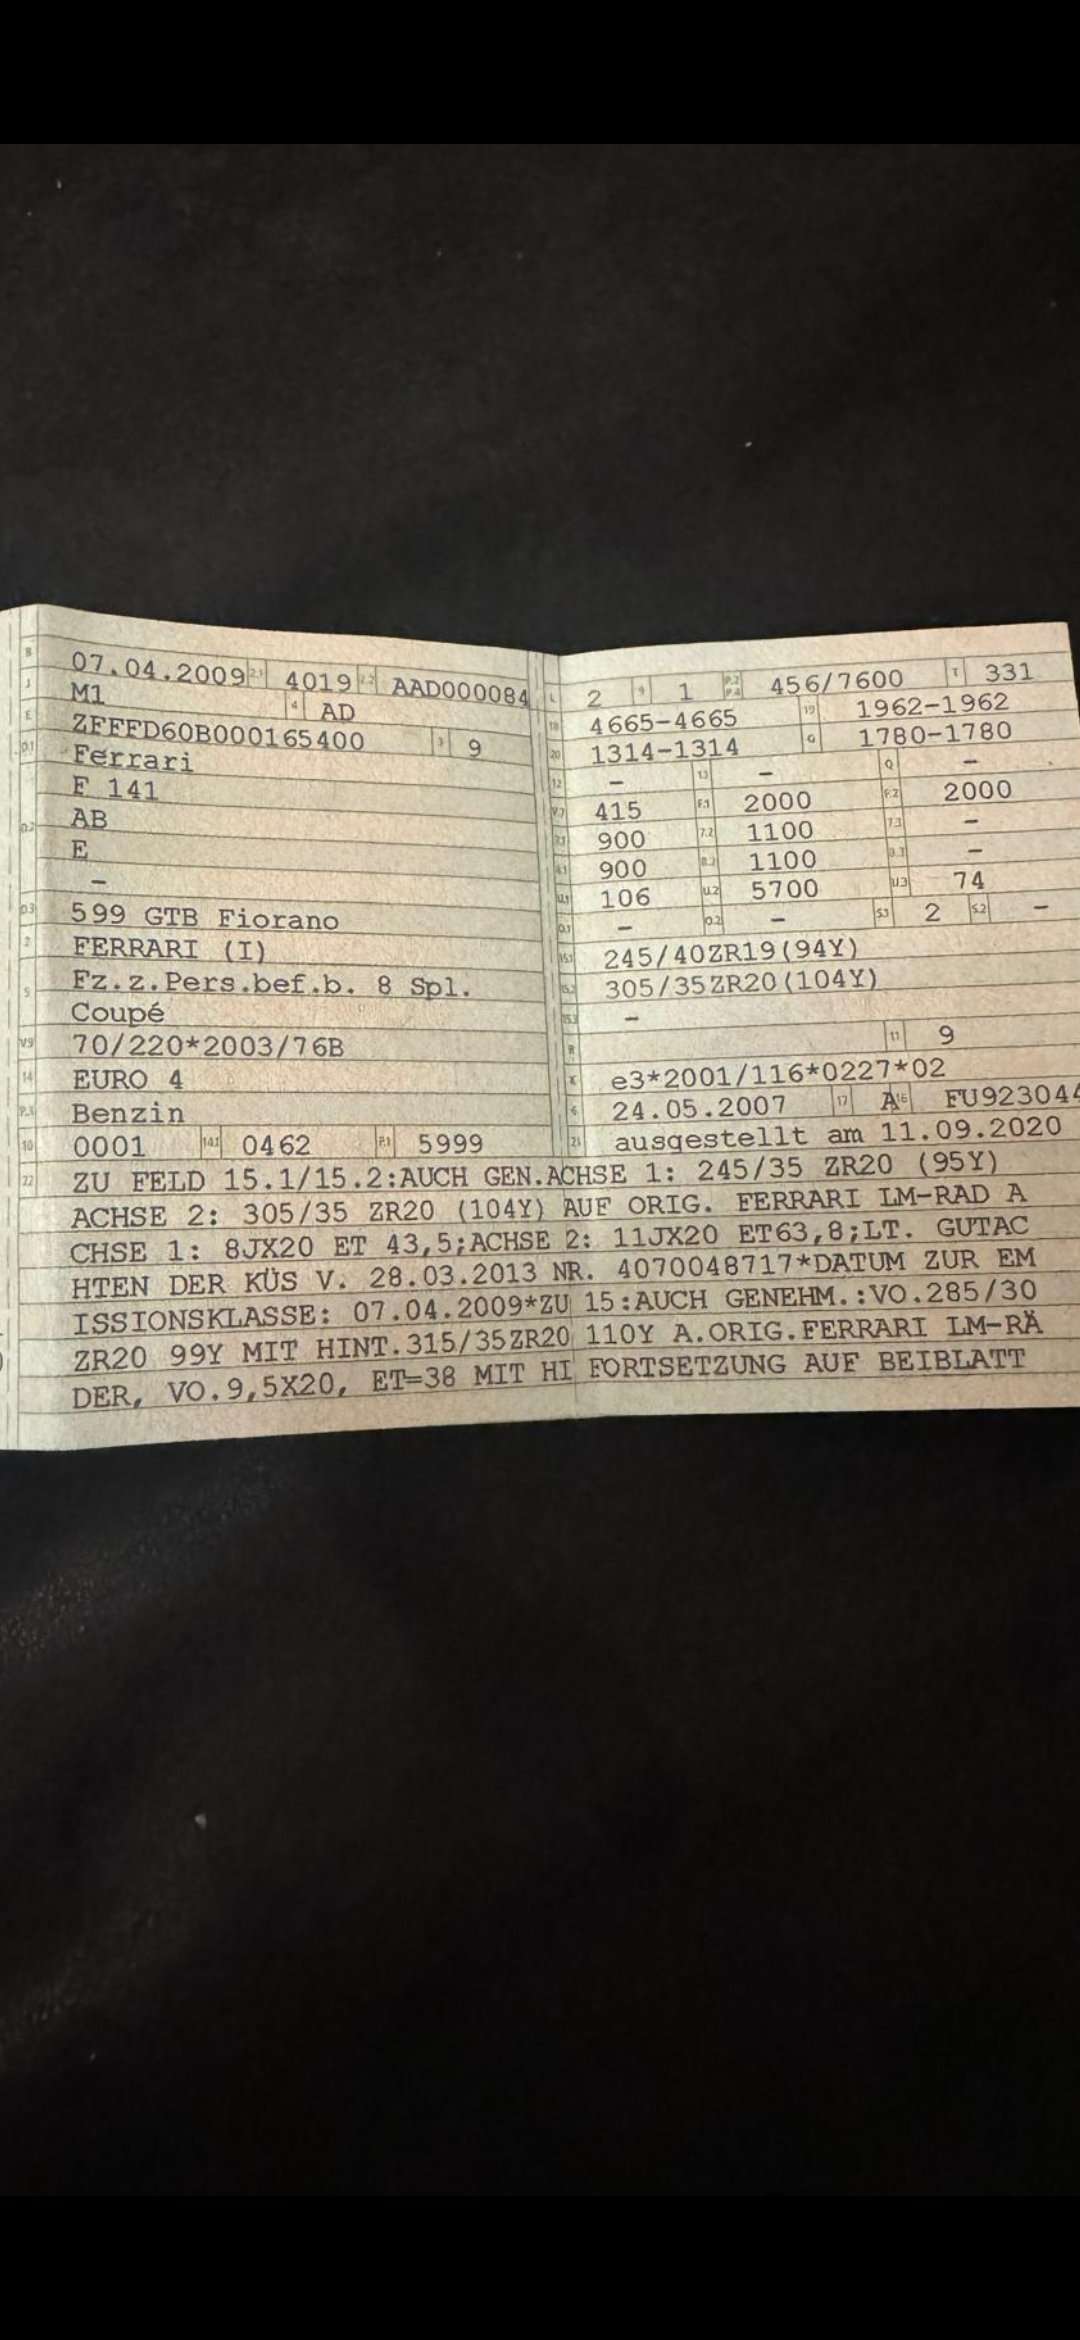 B 07.04.2009 2.1 4019 2.2 AAD000084
J M1 4 AD
E ZFFFD60B000165400 3 9
D.1 Ferrari
F 141
D.2 AB
E
–
D.3 599 GTB Fiorano
2 FERRARI (I)
5 Fz.z.Pers.bef.b. 8 Spl.
Coupé
V.9 70/220*2003/76B
14 EURO 4
P.3 Benzin
10 0001 14.1 0462 P.1 5999
L 2 9 1 P.2 P.4 456/7600 T 331
18 4665-4665 19 1962-1962
20 1314-1314 G 1780-1780
12 – 13 – Q –
V.7 415 F.1 2000 F.2 2000
7.1 900 7.2 1100 7.3 –
8.1 900 8.2 1100 8.3 –
U.1 106 U.2 5700 U.3 74
O.1 – O.2 – S.1 2 S.2 –
15.1 245/40ZR19(94Y)
15.2 305/35ZR20(104Y)
15.3 –
R 11 9
K e3*2001/116*0227*02
6 24.05.2007 17 A 16 FU923044
21 ausgestellt am 11.09.2020
22 ZU FELD 15.1/15.2:AUCH GEN.ACHSE 1: 245/35 ZR20 (95Y)
ACHSE 2: 305/35 ZR20 (104Y) AUF ORIG. FERRARI LM-RAD A
CHSE 1: 8JX20 ET 43,5;ACHSE 2: 11JX20 ET63,8;LT. GUTAC
HTEN DER KÜS V. 28.03.2013 NR. 4070048717*DATUM ZUR EM
ISSIONSKLASSE: 07.04.2009*ZU 15:AUCH GENEHM.:VO.285/30
ZR20 99Y MIT HINT.315/35ZR20 110Y A.ORIG.FERRARI LM-RÄ
DER, VO.9,5X20, ET=38 MIT HI FORTSETZUNG AUF BEIBLATT